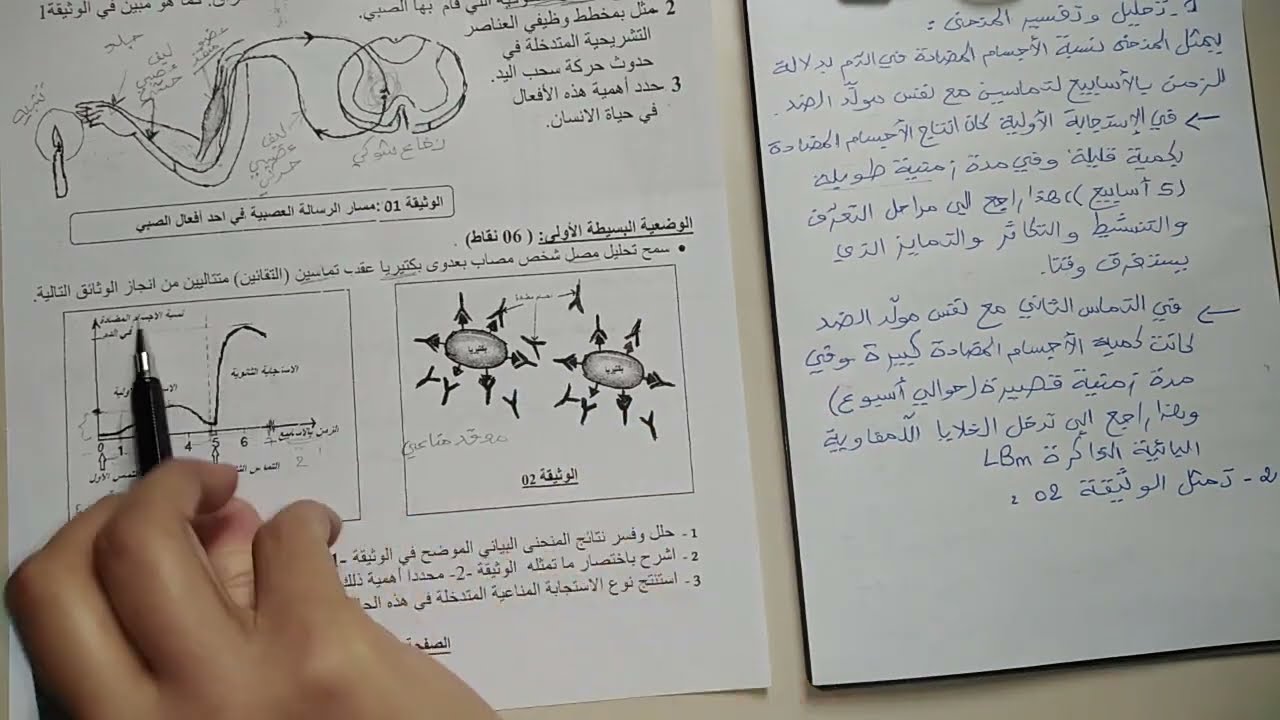 كما هو مبين في الوثيقة1
2 مثل بمخطط وظيفي العناصر
التشريحية المتدخلة في
حدوث حركة سحب اليد.
3 حدد أهمية هذه الأفعال
في حياة الانسان.
جلد
دفاع شوكي
الوثيقة 01 :مسار الرسالة العصبية في احد أفعال الصبي
الوضعية البسيطة الأولى: ( 06 نقاط) .
• سمح تحليل مصل شخص مصاب بعدوى بكتيريا عقب تماسين (التقانين) متتاليين من انجاز الوثائق التالية.
نسبة الاجسام المضادة
في الدم
الاستجابة الثانوية
الزمن بالاسابيع
0 1 4 5 6 7
2
أجسام مضادة
بكتيريا
بكتيريا
معقد مناعي
الوثيقة 02
1 - حلل وفسر نتائج المنحنى البياني الموضح في الوثيقة -1
2 - اشرح باختصار ما تمثله الوثيقة -2- محددا أهمية ذلك
3 - استنتج نوع الاستجابة المناعية المتدخلة في هذه
1- تحليل وتفسير المنحنى :
يمثل المنحنى نسبة الأجسام المضادة في الدم بدلالة
الزمن بالأسابيع لتماسين مع نفس مولّد الضد.
← في الإستجابة الأولية كان انتاج الأجسام المضادة
بكمية قليلة وفي مدة زمنية طويلة
(5 أسابيع)، هذا راجع الى مراحل التعرّف
والتنشيط والتكاثر والتمايز الذي
يستغرق وقتا.
← في التماس الثاني مع نفس مولّد الضد
كانت كمية الأجسام المضادة كبيرة وفي
مدة زمنية قصيرة (حوالي أسبوع)
وهذا راجع إلى تدخل الخلايا اللّمفاوية
البائية الذاكرة LBm
2- تمثل الوثيقة 02 :